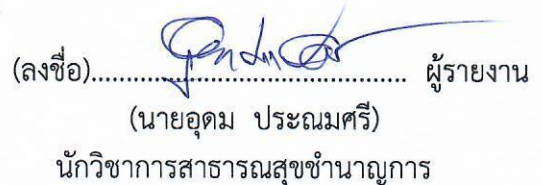 (ลงชื่อ)............................................. ผู้รายงาน
(นายอุดม ประณมศรี)
นักวิชาการสาธารณสุขชำนาญการ